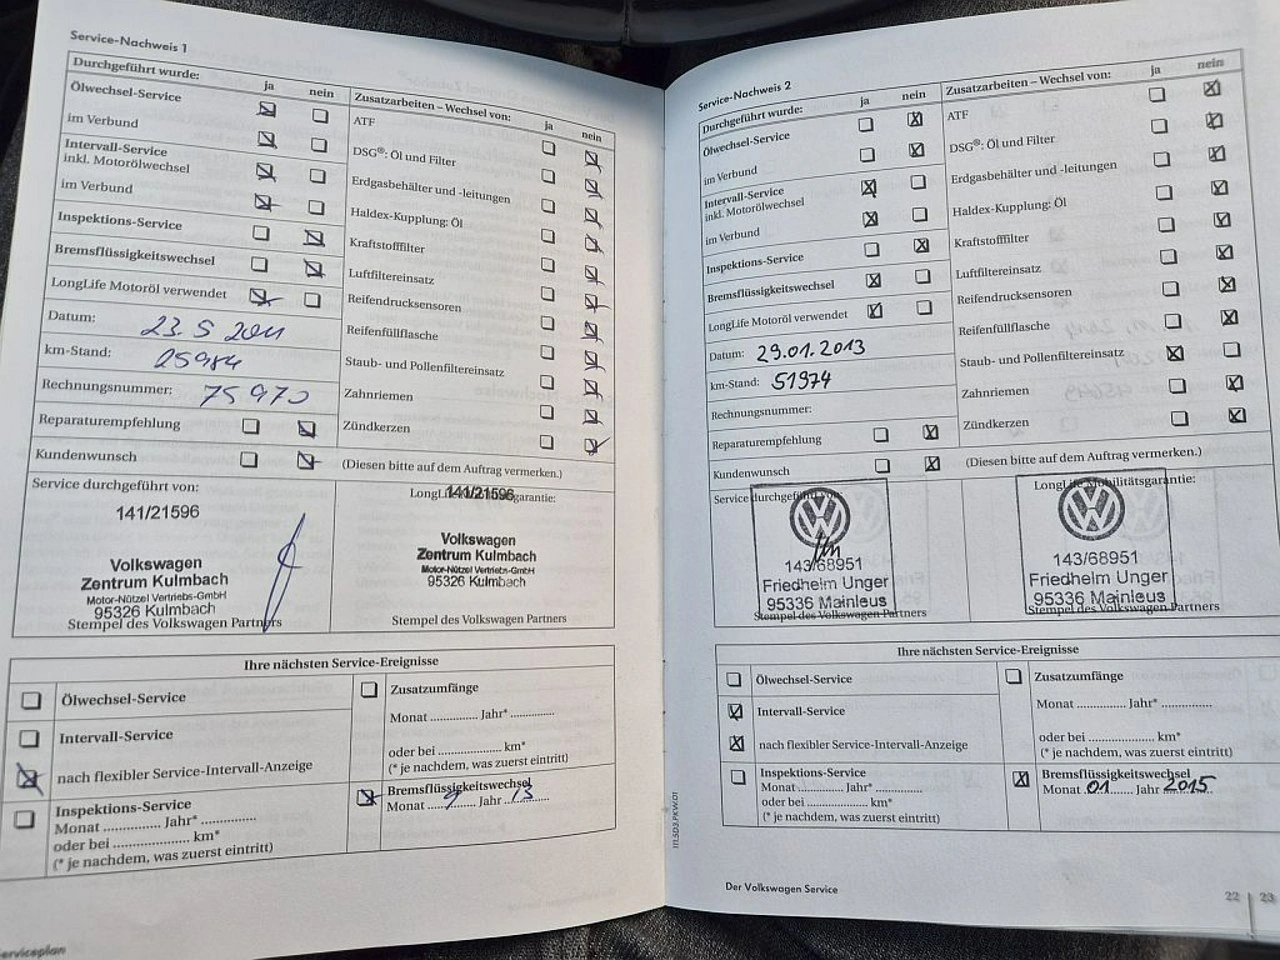 Service-Nachweis 1
Durchgeführt wurde:
ja nein
Ölwechsel-Service
im Verbund
Intervall-Service
inkl. Motorölwechsel
im Verbund
Inspektions-Service
Bremsflüssigkeitswechsel
LongLife Motoröl verwendet
Datum: 23.5 2011
km-Stand: 25984
Rechnungsnummer: 75970
Reparaturempfehlung
Kundenwunsch
Zusatzarbeiten – Wechsel von:
ja nein
ATF
DSG®: Öl und Filter
Erdgasbehälter und -leitungen
Haldex-Kupplung: Öl
Kraftstofffilter
Luftfiltereinsatz
Reifendrucksensoren
Reifenfüllflasche
Staub- und Pollenfiltereinsatz
Zahnriemen
Zündkerzen
(Diesen bitte auf dem Auftrag vermerken.)
Service durchgeführt von:
141/21596
Volkswagen
Zentrum Kulmbach
Motor-Nützel Vertriebs-GmbH
95326 Kulmbach
Stempel des Volkswagen Partners
141/21596
Volkswagen
Zentrum Kulmbach
Motor-Nützel Vertriebs-GmbH
95326 Kulmbach
Stempel des Volkswagen Partners
Ihre nächsten Service-Ereignisse
Ölwechsel-Service
Intervall-Service
nach flexibler Service-Intervall-Anzeige
Inspektions-Service
Monat ............... Jahr* ...............
oder bei .................... km*
(* je nachdem, was zuerst eintritt)
Zusatzumfänge
Monat ............. Jahr* ............
oder bei .................. km*
(* je nachdem, was zuerst eintritt)
Bremsflüssigkeitswechsel
Monat Jahr 13
Serviceplan
Service-Nachweis 2
Durchgeführt wurde:
ja nein
Ölwechsel-Service
im Verbund
Intervall-Service
inkl. Motorölwechsel
im Verbund
Inspektions-Service
Bremsflüssigkeitswechsel
LongLife Motoröl verwendet
Datum: 29.01.2013
km-Stand: 51974
Rechnungsnummer:
Reparaturempfehlung
Kundenwunsch
Zusatzarbeiten – Wechsel von:
ja nein
ATF
DSG®: Öl und Filter
Erdgasbehälter und -leitungen
Haldex-Kupplung: Öl
Kraftstofffilter
Luftfiltereinsatz
Reifendrucksensoren
Reifenfüllflasche
Staub- und Pollenfiltereinsatz
Zahnriemen
Zündkerzen
(Diesen bitte auf dem Auftrag vermerken.)
Service durchgeführt von:
143/68951
Friedhelm Unger
95336 Mainleus
Stempel des Volkswagen Partners
LongLife Mobilitätsgarantie:
143/68951
Friedhelm Unger
95336 Mainleus
Stempel des Volkswagen Partners
Ihre nächsten Service-Ereignisse
Ölwechsel-Service
Intervall-Service
nach flexibler Service-Intervall-Anzeige
Inspektions-Service
Monat ............. Jahr* ............
oder bei .................. km*
(* je nachdem, was zuerst eintritt)
Zusatzumfänge
Monat ............. Jahr* .............
oder bei .................. km*
(* je nachdem, was zuerst eintritt)
Bremsflüssigkeitswechsel
Monat 01 Jahr 2015
111.5D3.PKW.01
Der Volkswagen Service
22 | 23